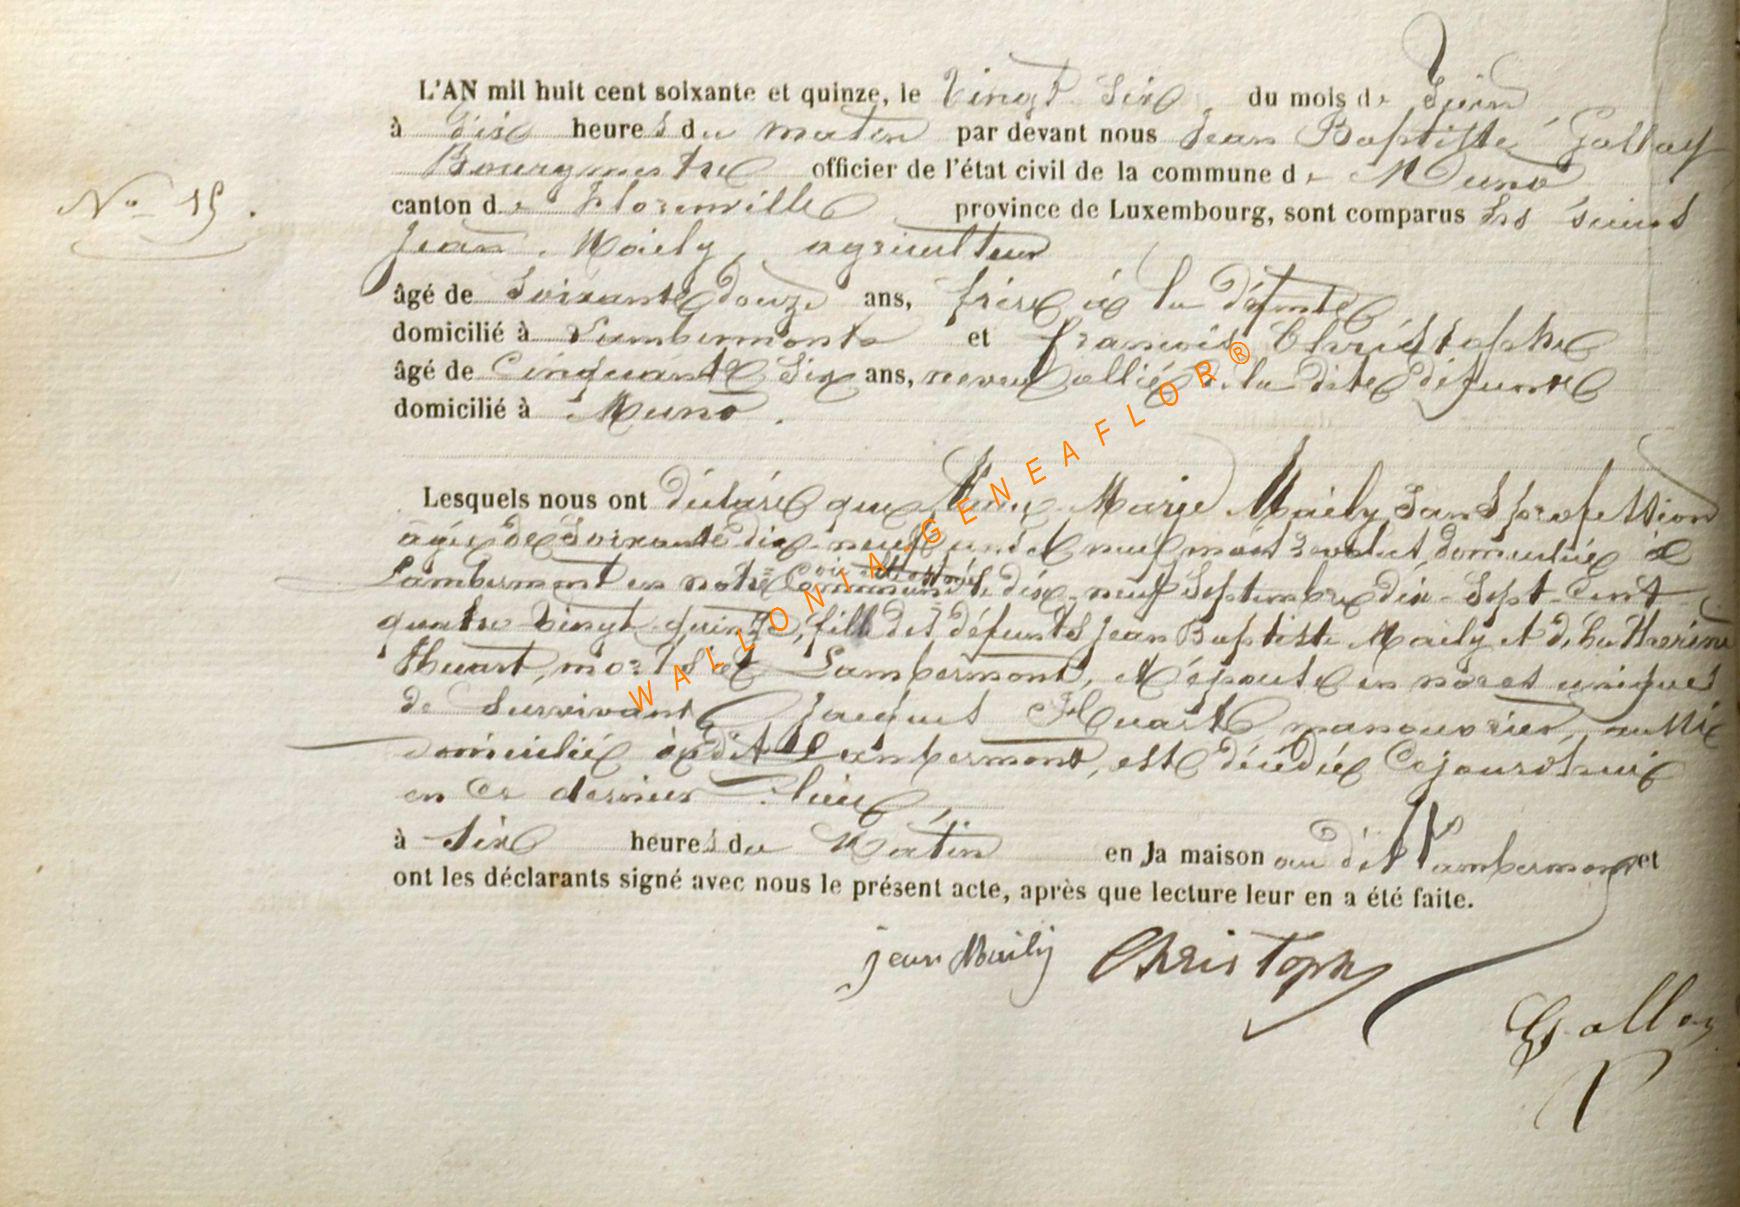 L'AN mil huit cent soixante et quinze, le vingt six, du mois de Juin
à dix heures du matin par devant nous Jean Baptiste Gallay
Bourgmestre officier de l'état civil de la commune de Muno
N° 15.
canton de Florenville province de Luxembourg, sont comparus les sieurs
Jean Maily, agriculteur
âgé de soixante douze ans, frère à la défunte
domicilié à Lambermont et françois Christophe
âgé de Cinquante six ans, neveu allié de la dite défunte
domicilié à Muno.
Lesquels nous ont déclaré que Marie Maily, sans profession
âgée de soixante dix-neuf ans et neuf mois révolus, domiciliée à
Lambermont en notre Commune le dix-neuf Septembre dix-sept-cent
quatre vingt quinze, fille des défunts Jean Baptiste Maily et de Catherine
Huart, morts à Lambermont, et épouse en noces uniques
de survivant Jacques Huart, manouvrier, aussi
domicilié au dit Lambermont, est décédée cejourd'hui
en ce dernier lieu,
à six heures du Matin en la maison au dit Lambermont et
ont les déclarants signé avec nous le présent acte, après que lecture leur en a été faite.
jean Maily Christophe
Gallay
WALLONIA-GENEAFLOR®